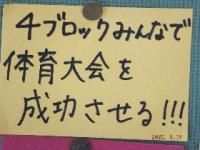 4ブロックみんなで
体育大会を
成功させる!!!